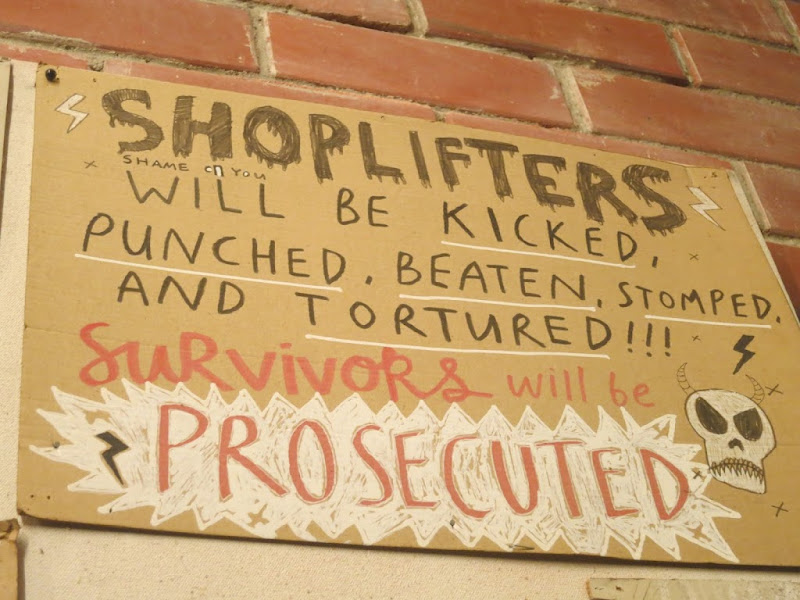 SHOPLIFTERS
SHAME on YOU
WILL BE KICKED,
PUNCHED, BEATEN, STOMPED,
AND TORTURED!!!
SURVIVORS will be
PROSECUTED